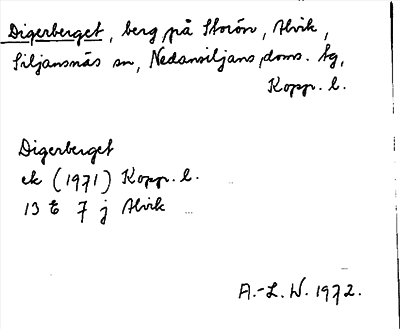 Digerberget, berg på Storön, Alvik,
Siljansnäs sn, Nedansiljans doms. tg,
Kopp. l.
Digerberget
ek (1971) Kopp. l.
13 E 7 j Alvik
A.-L. W. 1972.